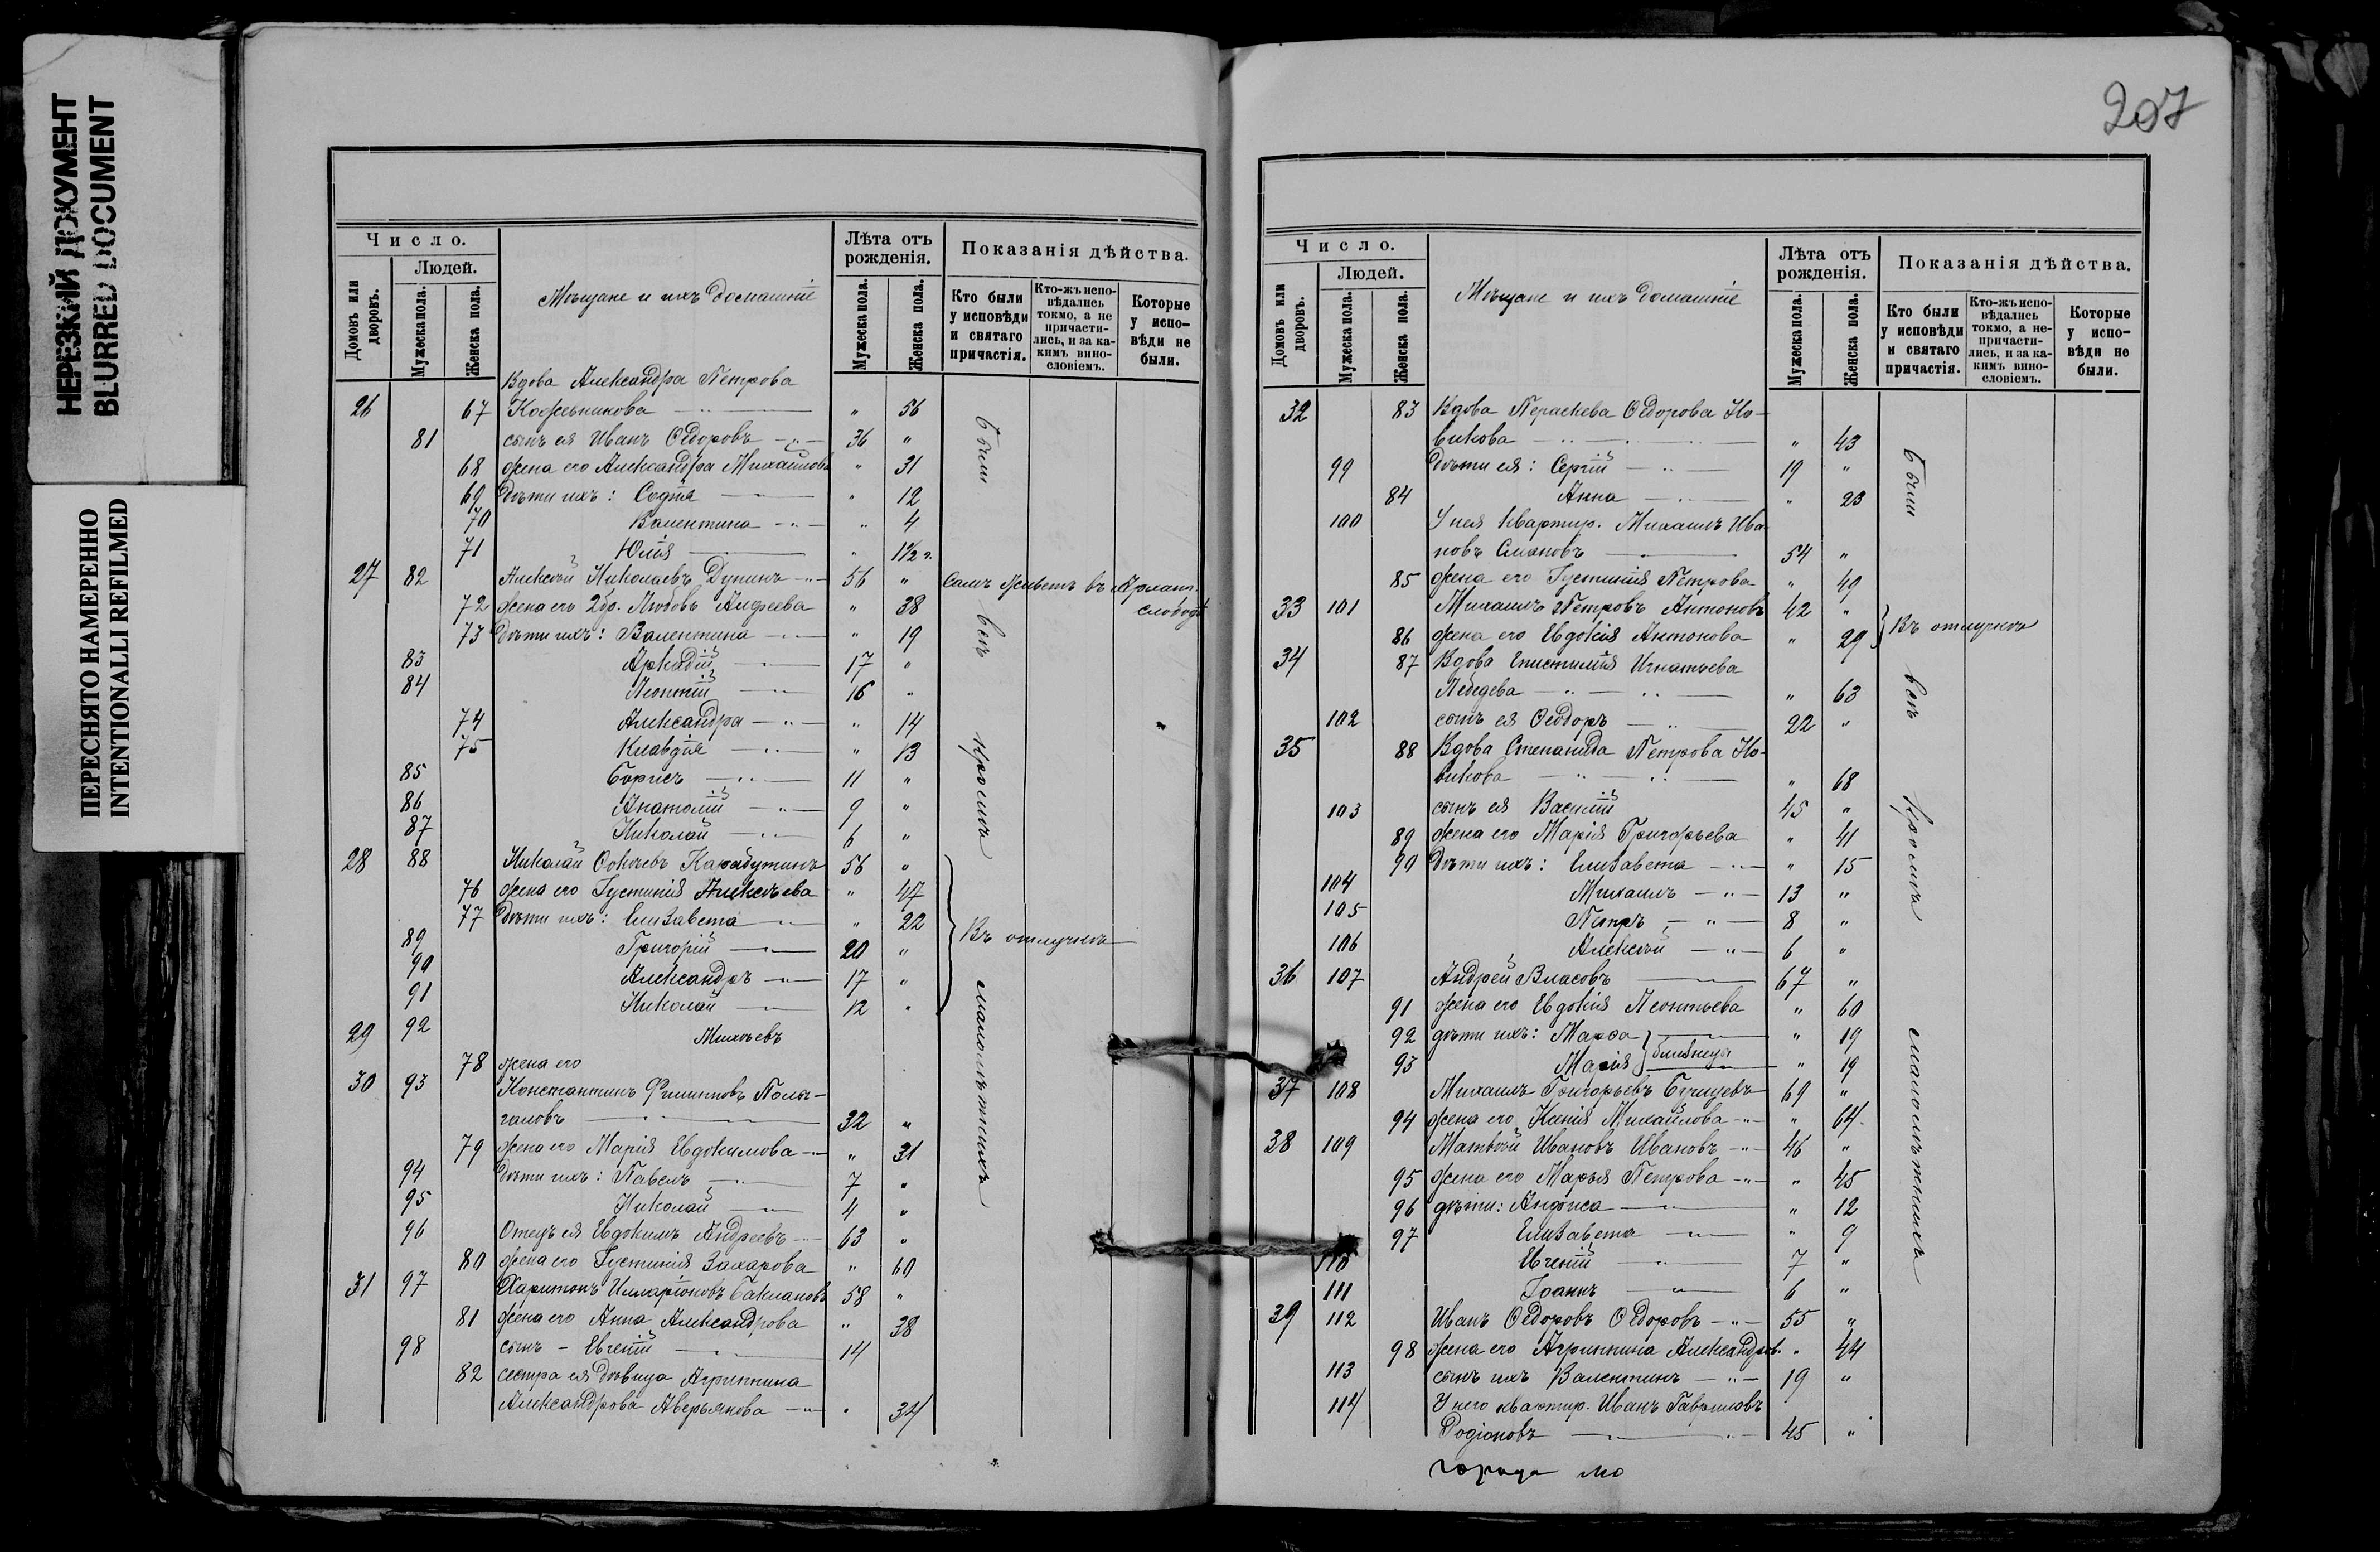 НЕРЕЗКИЙ ДОКУМЕНТ
BLURRED DOCUMENT
ПЕРЕСНЯТО НАМЕРЕННО
INTENTIONALLI REFILMED
Число.
Людей.
Домовъ или дворовъ.
Мужеска пола.
Женска пола.
Мѣщане и ихъ домашніе
Лѣта отъ рожденія.
Мужеска пола.
Женска пола.
Показанія дѣйства.
Кто были у исповѣди и святаго причастія.
Кто-жъ исповѣдались токмо, а не причастились, и за какимъ винословіемъ.
Которые у исповѣди не были.
Вдова Александра Петрова
26 67 Кожевникова " 56
81 сынъ ея Иванъ Ѳедоровъ 36 "
68 жена его Александра Михайлова " 31
69 дѣти ихъ: Софія " 12
70 Валентина " 4
71 Юлія " 1½ г.
27 82 Алексѣй Николаевъ Дупинъ 56 " Самъ живетъ въ
слободѣ
72 жена его 2 бр. Любовь Андреева " 38
73 дѣти ихъ: Валентина " 19
83 Аркадій 17 "
84 Леонтій 16 "
74 Александра " 14
75 Клавдія " 13
85 Борисъ 11 "
86 Анатолій 9 "
87 Николай 6 "
28 88 Николай Карабутинъ 56 "
76 жена его Густинія Алексѣева " 47
77 дѣти ихъ: Елизавета " 22
89 Григорій 20 "
90 Александръ 17 "
91 Николай 12 "
Въ отлучкѣ
29 92 Михѣевъ
78 жена его
30 93 Константинъ Филипповъ Полы-
галовъ 32 "
79 жена его Марія Евдокимова " 31
94 дѣти ихъ: Павелъ 7 "
95 Николай 4 "
96 Отецъ ея Евдокимъ Андреевъ 63 "
80 жена его Густинія Захарова " 60
31 97 Харитонъ Илларіоновъ Баклановъ 58 "
81 жена его Анна Александрова " 38
98 сынъ - Евгеній 14
82 сестра ея дѣвица Агриппина
Александрова Аверьянова " 34
были всѣ кромѣ малолѣтнихъ
207
Число.
Людей.
Домовъ или дворовъ.
Мужеска пола.
Женска пола.
Мѣщане и ихъ домашніе
Лѣта отъ рожденія.
Мужеска пола.
Женска пола.
Показанія дѣйства.
Кто были у исповѣди и святаго причастія.
Кто-жъ исповѣдались токмо, а не-причастились, и за какимъ винословіемъ.
Которые у исповѣди не были.
32 83 Вдова Параскева Ѳедорова Но-
викова " 43
99 дѣти ея: Сергій 19 "
84 Анна " 23
100 У нея квартир. Михаилъ Ива
новъ 54 "
85 жена его Густинія Петрова " 49
33 101 Михаилъ Петровъ Антоновъ 42 "
86 жена его Евдокія Антонова " 29
Въ отлучкѣ
34 87 Вдова Епистимія Игнатьева
Лебедева " 63
102 сынъ ея Ѳеодоръ 22 "
35 88 Вдова Степанида Петрова Но-
викова " 68
103 сынъ ея Василій 45 "
89 жена его Марія Григорьева " 41
90 дѣти ихъ: Елизавета " 15
104 Михаилъ 13 "
105 Петръ 8 "
106 Алексѣй 6 "
36 107 Андрей Власовъ 67 "
91 жена его Евдокія Леонтьева " 60
92 дѣти ихъ: Марѳа " 19
близнецы
93 Марія " 19
37 108 Михаилъ Григорьевъ 69 "
94 жена его Ксенія Михайлова " 64
38 109 Матвѣй Ивановъ Ивановъ 46 "
95 жена его Марья Петрова " 45
96 дѣти: Анфиса " 12
97 Елизавета " 9
110 Евгеній 7 "
111 Іоаннъ 6 "
39 112 Иванъ Ѳедоровъ Ѳедоровъ 55 "
98 жена его Агриппина Александров. " 44
113 сынъ ихъ Валентинъ 19 "
114 У него квартир. Иванъ Гавриловъ
Родіоновъ 45 "
были всѣ кромѣ малолѣтнихъ
города